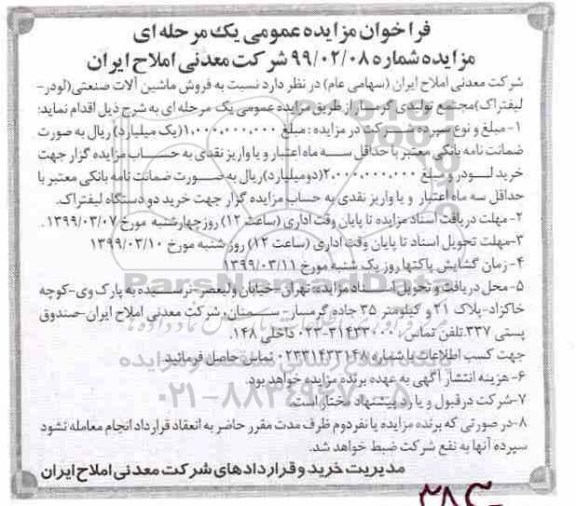 فراخوان مزایده عمومی یک مرحله ای
مزایده شماره ۹۹/۰۲/۰۸ شرکت معدنی املاح ایران
شرکت معدنی املاح ایران (سهامی عام) در نظر دارد نسبت به فروش ماشین آلات صنعتی(لودر-
لیفتراک)مجتمع تولیدی گرمسار از طریق مزایده عمومی یک مرحله ای به شرح ذیل اقدام نماید:
۱-مبلغ و نوع سپرده شرکت در مزایده : مبلغ ۱,۰۰۰,۰۰۰,۰۰۰(یک میلیارد) ریال به صورت
ضمانت نامه بانکی معتبر با حداقل سه ماه اعتبار و یا واریز نقدی به حساب مزایده گزار جهت
خرید لودر و مبلغ ۲,۰۰۰,۰۰۰,۰۰۰(دومیلیارد)ریال به صورت ضمانت نامه بانکی معتبر با
حداقل سه ماه اعتبار و یا واریز نقدی به حساب مزایده گزار جهت خرید دو دستگاه لیفتراک.
۲-مهلت دریافت اسناد مزایده تا پایان وقت اداری (ساعت ۱۲) روز چهارشنبه مورخ ۱۳۹۹/۰۳/۰۷.
۳-مهلت تحویل اسناد تا پایان وقت اداری (ساعت ۱۲) روز شنبه مورخ ۱۳۹۹/۰۳/۱۰
۴-زمان گشایش پاکتها روز یک شنبه مورخ ۱۳۹۹/۰۳/۱۱
۵-محل دریافت و تحویل اسناد مزایده:تهران-خیابان ولیعصر-نرسیده به پارک وی-کوچه
خاکزاد-پلاک ۲۱ و کیلومتر ۳۵ جاده گرمسار-سمنان، شرکت معدنی املاح ایران-صندوق
پستی ۳۳۷.تلفن تماس: ۳۱۴۳۳۰۰۰-۰۲۳ داخلی ۱۴۸.
جهت کسب اطلاعات با شماره ۰۲۳۳۱۴۳۳۱۴۸ تماس حاصل فرمائید.
۶-هزینه انتشار آگهی به عهده برنده مزایده خواهد بود.
۷-شرکت در قبول و یا رد پیشنهاد مختار است.
۸-در صورتی که برنده مزایده یا نفر دوم ظرف مدت مقرر حاضر به انعقاد قرارداد انجام معامله نشود
سپرده آنها به نفع شرکت ضبط خواهد شد.
مدیریت خرید و قراردادهای شرکت معدنی املاح ایران